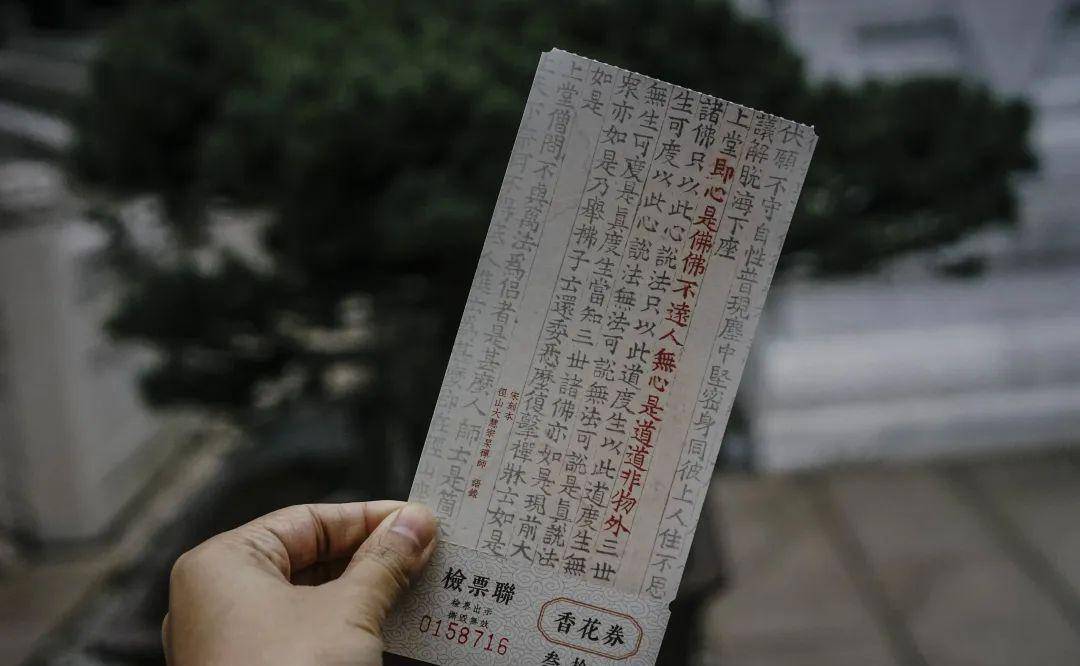 伏願不守自性普現塵中堅密身同彼上人住不思
議解脫海下座
上堂即心是佛佛不遠人無心是道道非物外三世
諸佛只以此心說法只以此道度生以此道度生無
生可度以此心說法無法可說無法可說是眞說法
無生可度是眞度生當知三世諸佛亦如是現前大
衆亦如是乃舉拂子云還委悉麼復擊禪牀云如是
如是
上堂僧問不與萬法爲侶者是甚麼人師云是箇
宋刻本
徑山大慧宗杲禪師 語錄
檢票聯
檢票出示
撕毀無效
0158716
香花券
叁拾